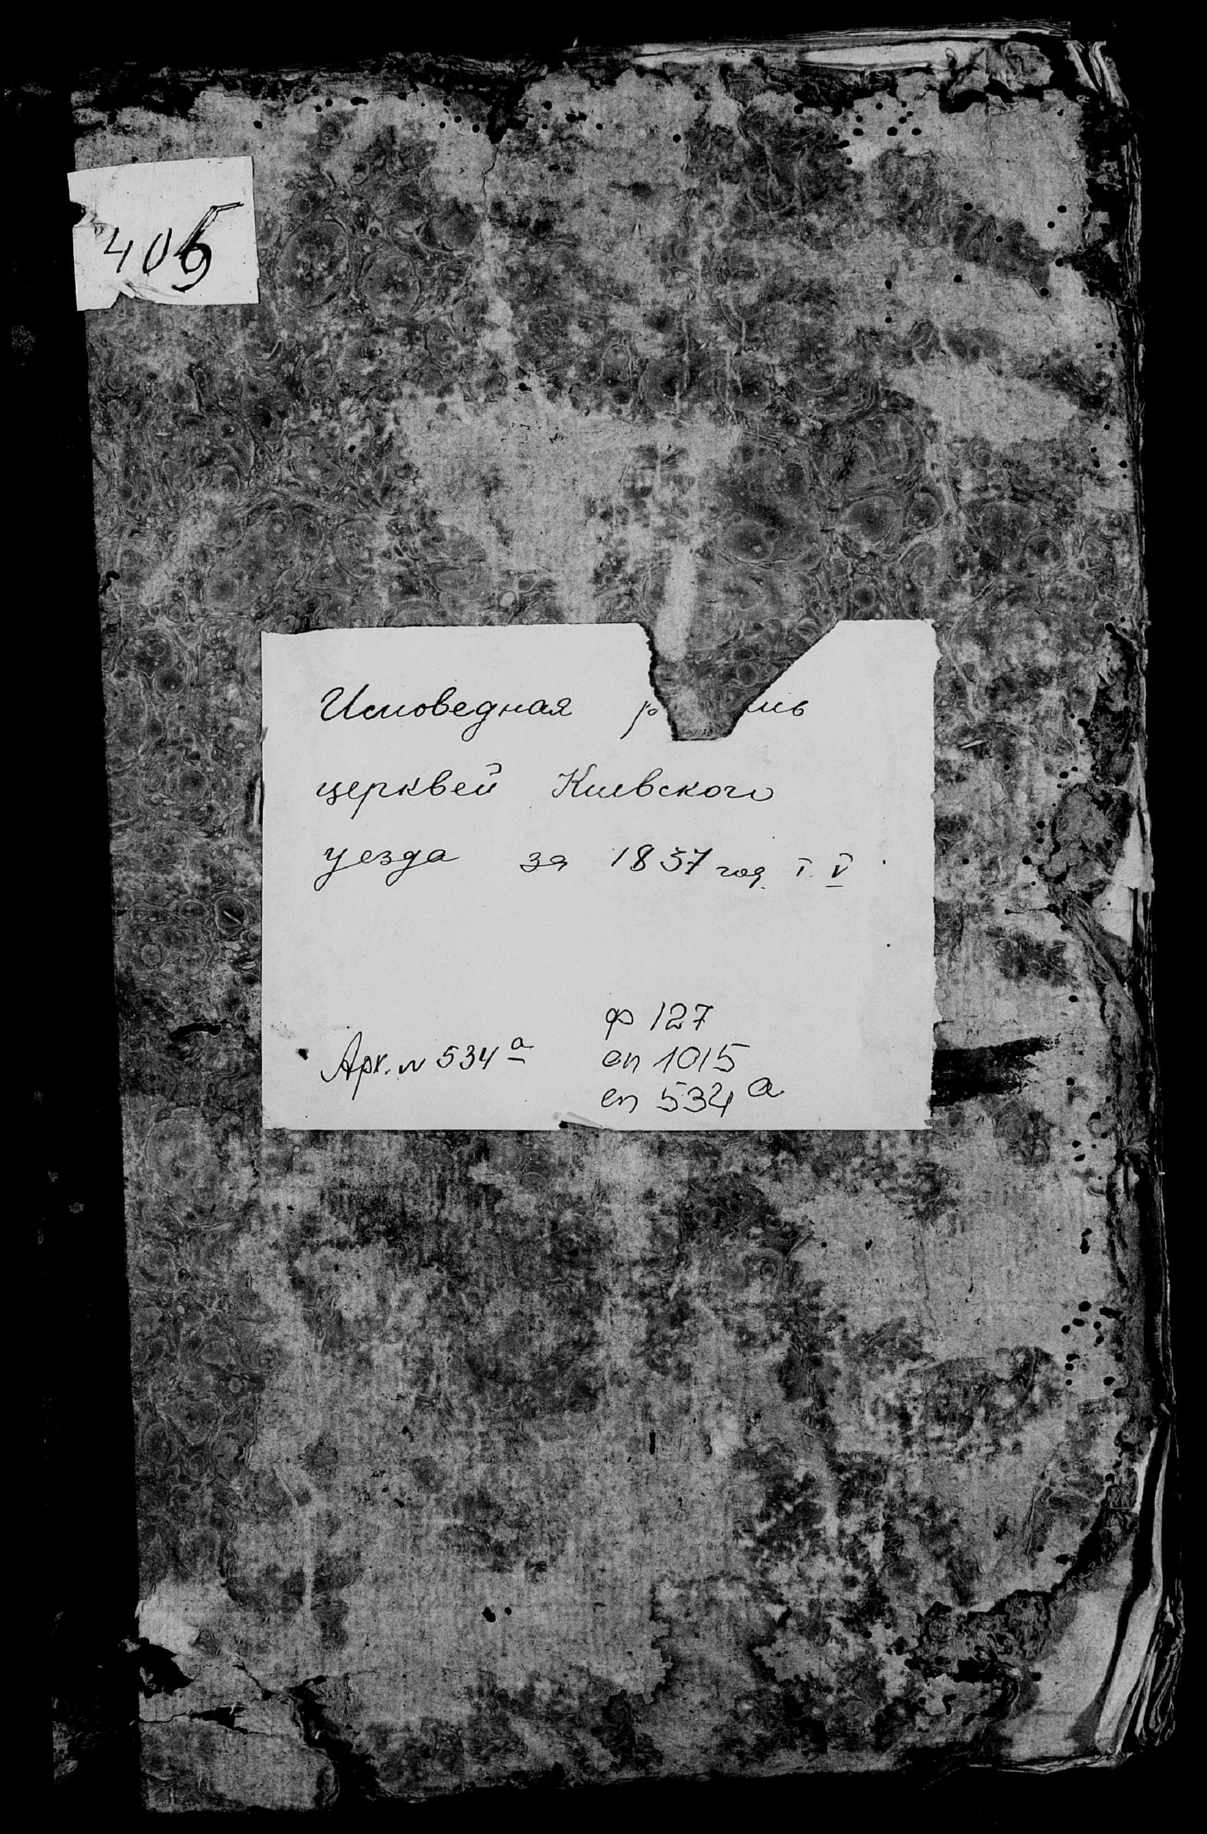 405
Исповедная
церквей Киевского
уезда за 1837 год. т. V
ф 127
Арх. № 534 а
оп 1015
еп 534 а